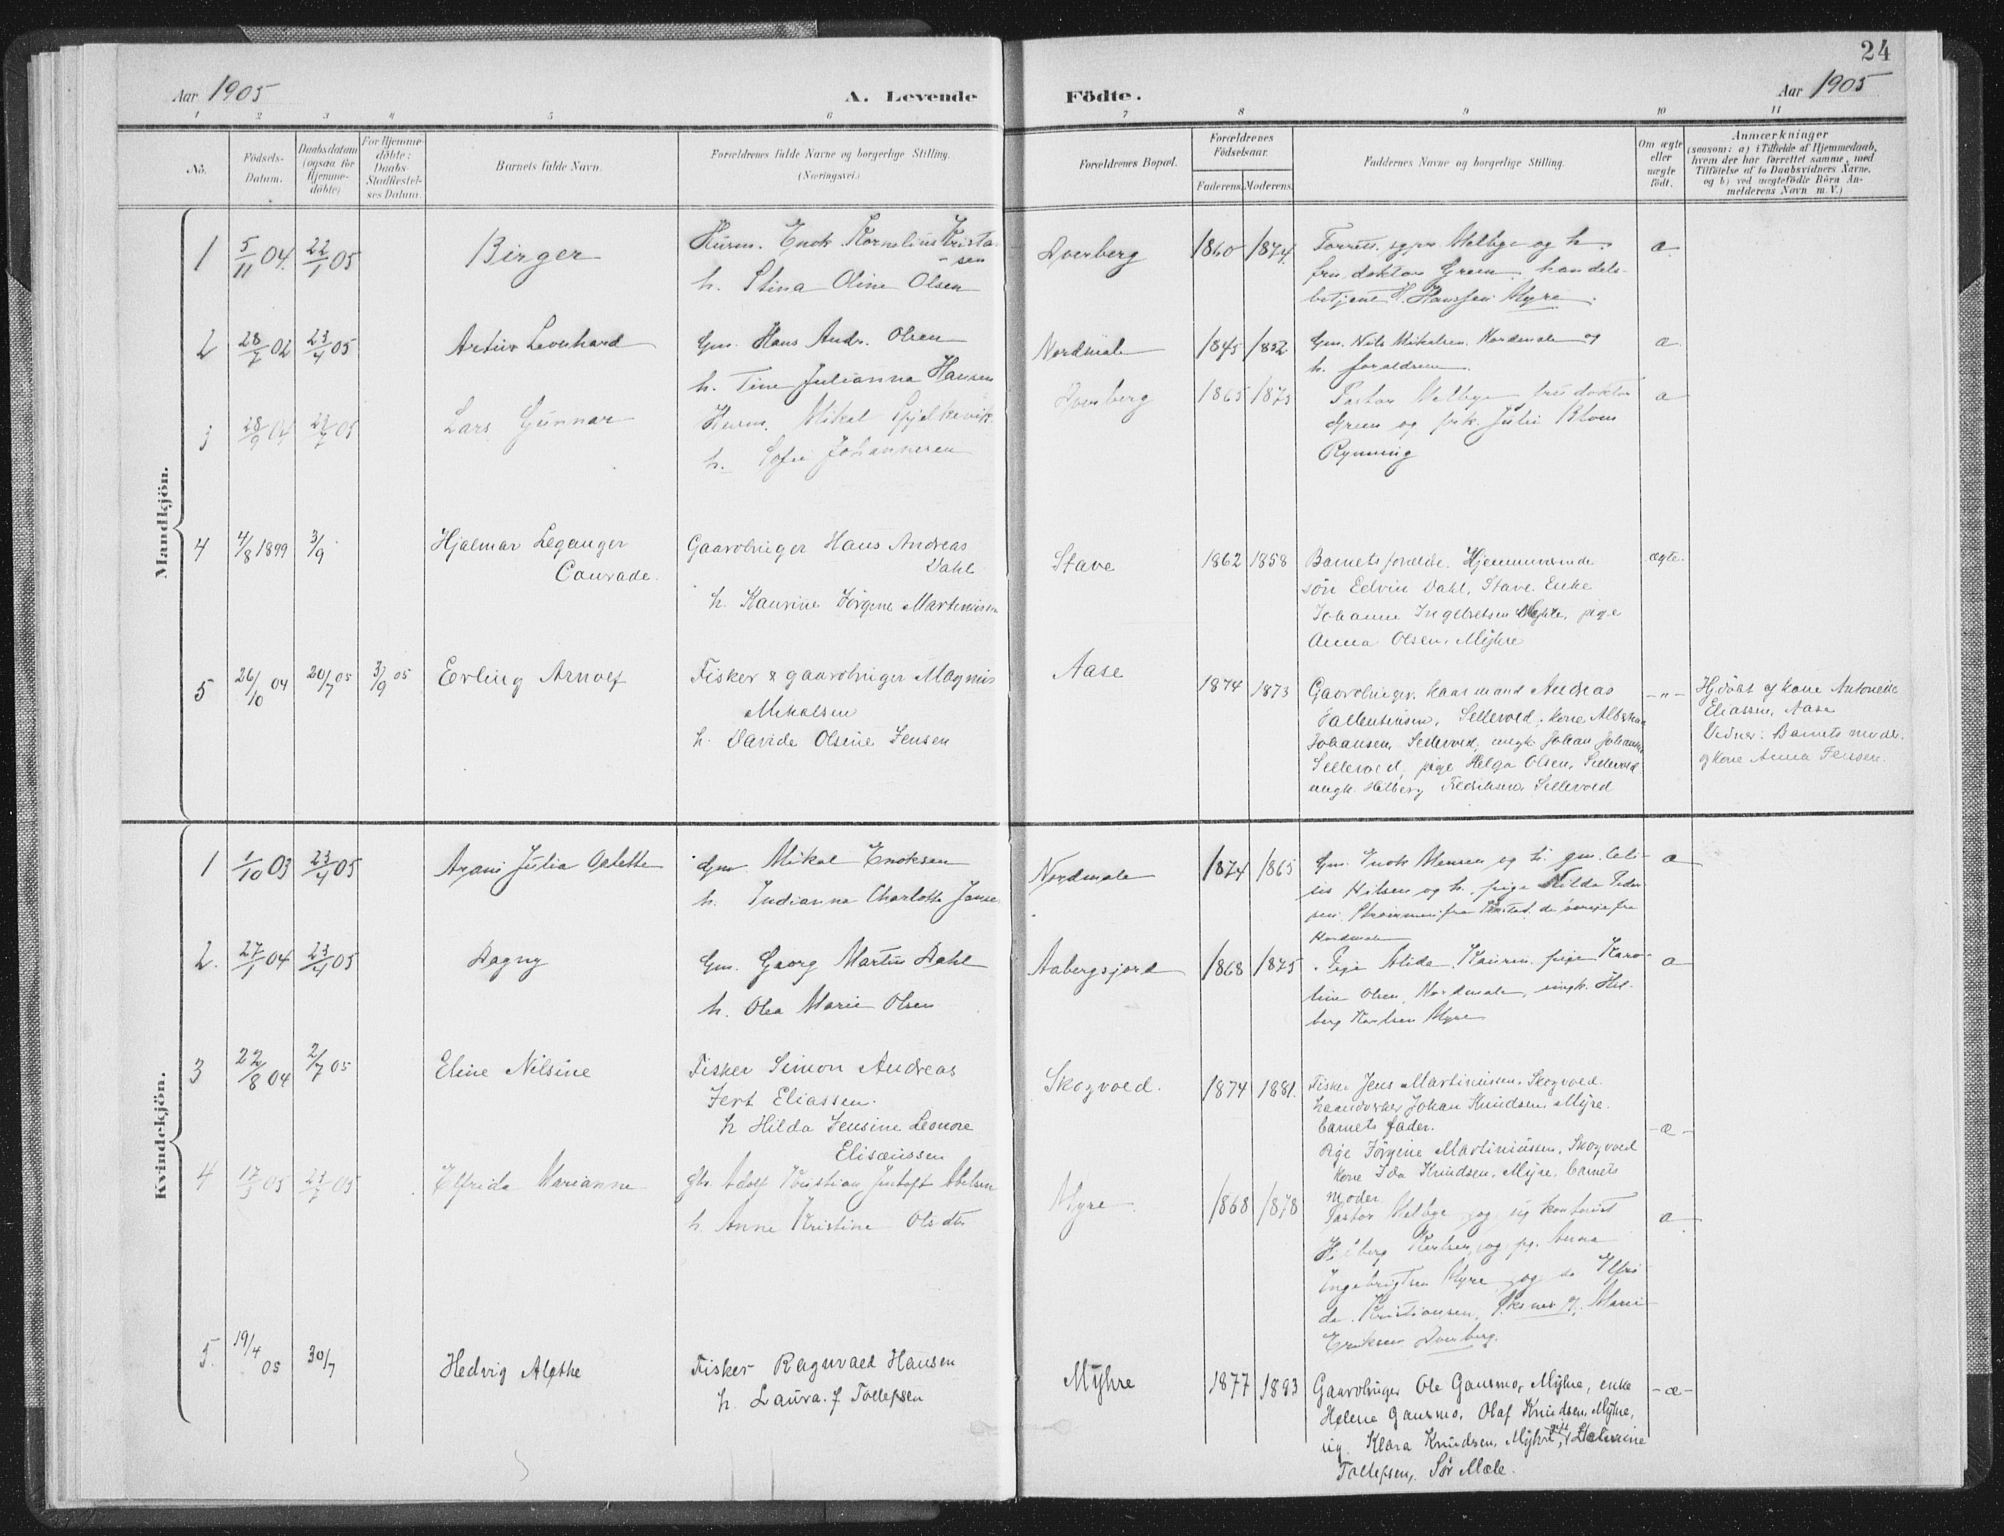 24
Aar 1905
A. Levende
Födte.
Aar 1905
1 2 3 4 5 6 7 8 9 10 11
No.
Födsels-Datum.
Daabsdatum (ogsaa for Hjemme-döbte)
For Hjemme-döbte: Daabs-Stadfæstel-ses Datum.
Barnets fulde Navn.
Forældrenes fulde Navne og borgerlige Stilling.
(Næringsvei.)
Forældrenes Bopæl.
Forældrenes Födselsaar.
Faderens. Moderens.
Faddernes Navne og borgerlige Stilling.
Om ægte eller uægte født.
Anmærkninger
(saasom: a) i Tilfælde af Hjemmedaab,
hvem der har forrettet samme, med
Tilföielse af to Daabsvidners Navne.
og b) ved uægtefödte Börn An-
melderens Navn m. V.)
Mandkjön.
1 5/11 04. 22/1 05 Birger
Husm. Enok Kornelius Krista-
sen
h. Stina Oline Olsen
Dverberg 1860 1874.
Melbye og h.
fru doktor Green, handels-
betjent H. Hanssen Myre.
a
2 28/2 02 23/4 05 Artur Leonhard
Gm. Hans Andr. Olsen
h. Tine Julianna Hansen
Nordmele 1845 1852
Gm. Nils Mikalsen Nordmele og
h. forældrene.
a
3 28/9 04 05 Lars Gunnar
Husm. Mikal Spjelkevik
h. Sofie Johannesen
Dverberg 1865 1875
Pastor Melbye fru doktor
Green og frk. Julie Blom
Rynning
a
4 4/8 1899 3/9 Hjalmar Leganger
Conrade.
Gaardbruger Hans Andreas
Dahl
h. Kaurine Jörgine Martinusen
Stave 1862 1858
Barnets forældre. Hjemmeværende
sön Edvin Dahl, Stave. Enke
Johanne Ingebretsen Myhre, pige
Anna Olsen, Myhre
ægte.
5 26/10 04 20/7 05 3/9 05 Erling Arnolf
Fisker & gaardbruger Magnus
Mikalsen
h. Davide Olsine Jensen
Aase 1874 1873
Gaardbruger, kaarmand Andreas
Vallentinsen, Sellevold, kone
Johansen, Sellevold, ungk. Johan
Sellevold, pige Helga Olsen, Sellevold
ungk. Hilberg Fredriksen, Sellevold
-"-
Hjdöbt af kone Antonette
Eliassen, Aase
Vidner: Barnets moder
og kone Anna Jensen.
Kvindekjön.
1 1/10 03 23/4 05 Julia
Gm Mikal Enoksen
h. Indianna Charlotte
Nordmele 1874 1865
Gm. Enok og h. gm.
Nilsen og h. pige Hilda Peder-
sen, fra de övrige fra
Nordmele
a
2. 27/1 04 23/4 05 Dagny
Gm. Georg Martin Dahl
h. Olea Marie Olsen
Aabergsjord 1868 1875
Pige Alida pige Karo-
line Olsen, Nordmele, ungk. Hil-
berg Karlsen Myre
a
3 22/8 04 2/7 05 Eline Nilsine
Fisker Simon Andreas
Jert Eliassen.
h Hilda Jensine Leonore
Elisæussen
Skogvold. 1874 1881.
Fisker Jens Martinussen, Skogvold.
haandverker Johan Knudsen, Myre.
barnets fader.
Pige Jörgine Martinussen, Skogvold
kone Ida Knudsen, Myre, barnets
moder.
-æ-
4 17/3 05 05 Elfrida Marianne
Adolf Kristian
h. Anne Kristine Olsdtr
Myre 1868 1878
Pastor Melbye og
Hilberg Karlsen og pg. Anna
Ingebrigtsen Myre og do Elfri-
da Kristiansen, og Marie
Eriksen Dverberg.
a
5. 19/4 05 30/7 Hedvig Alethe
Fisker Ragnvald Hansen
h. Laura f Tollefsen
Myhre 1877 1893
Gaardbruger Ole Gausmo, Myhre, enke
Helene Gausmo, Olaf Knudsen, Myhre,
ug. Klara Knudsen, Myhre
Tollefsen, Sör Mæle.
-æ-